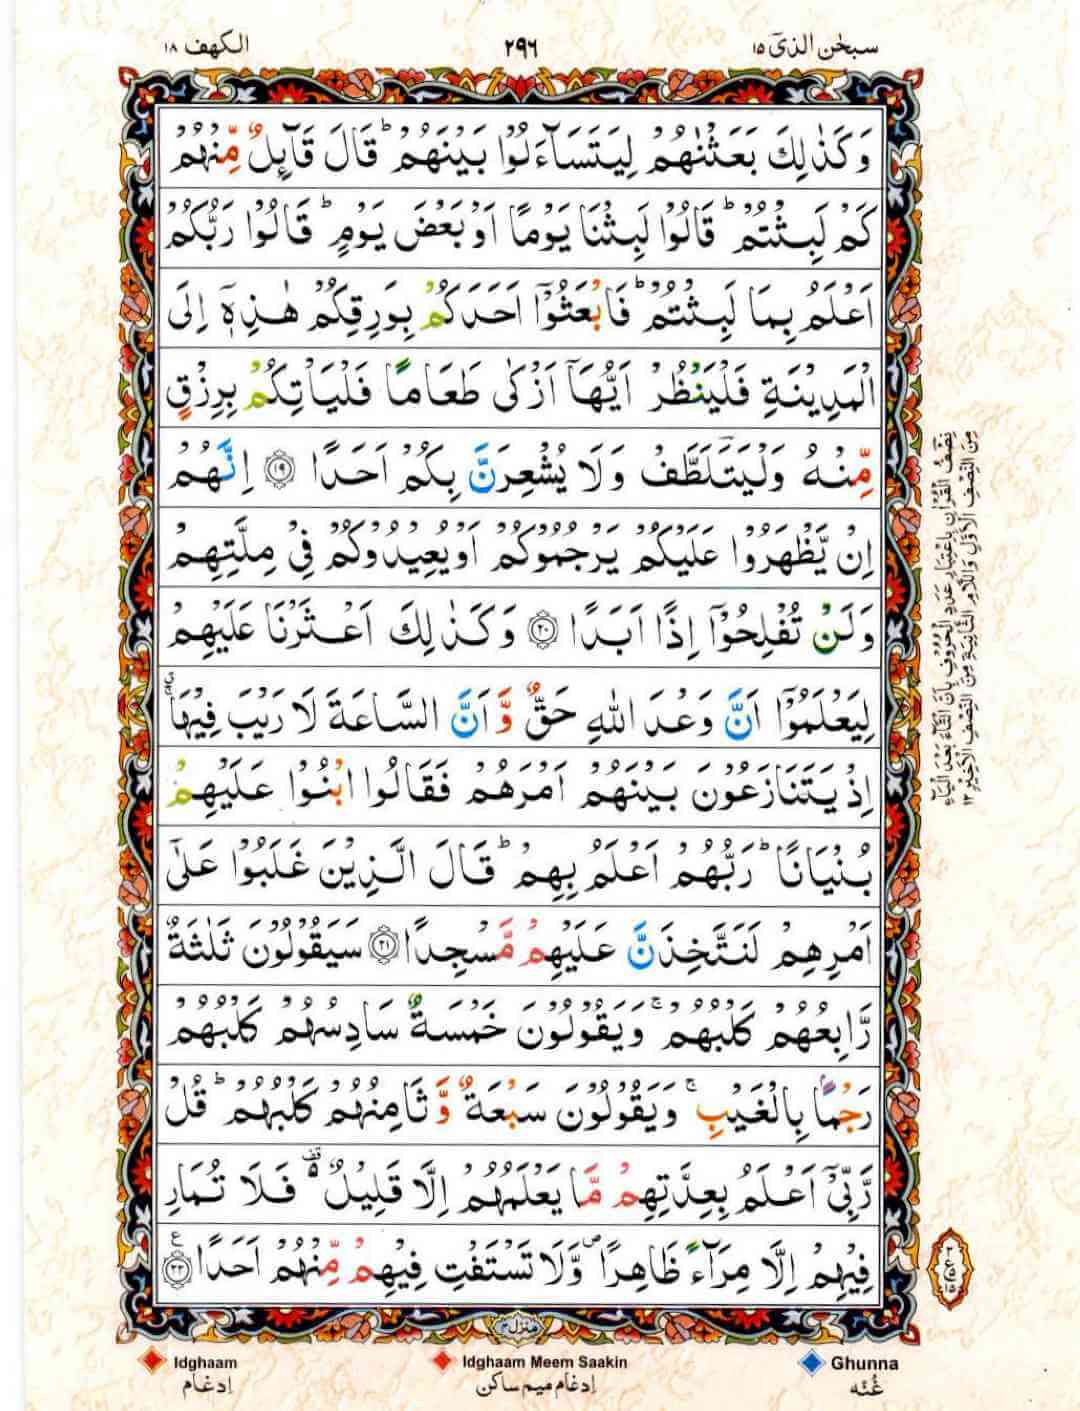 سبحٰن الذیٓ ١٥
٢٩٦
الكهف ١٨
وَكَذٰلِكَ بَعَثْنٰهُمْ لِيَتَسَآءَلُوْا بَيْنَهُمْ ؕ قَالَ قَآئِلٌ مِّنْهُمْ
كَمْ لَبِثْتُمْ ؕ قَالُوْا لَبِثْنَا يَوْمًا اَوْ بَعْضَ يَوْمٍ ؕ قَالُوْا رَبُّكُمْ
اَعْلَمُ بِمَا لَبِثْتُمْ ؕ فَابْعَثُوْۤا اَحَدَكُمْ بِوَرِقِكُمْ هٰذِهٖۤ اِلَى
الْمَدِيْنَةِ فَلْيَنْظُرْ اَيُّهَاۤ اَزْكٰى طَعَامًا فَلْيَاْتِكُمْ بِرِزْقٍ
مِّنْهُ وَلْيَتَلَطَّفْ وَلَا يُشْعِرَنَّ بِكُمْ اَحَدًا ۝١٩ اِنَّهُمْ
اِنْ يَّظْهَرُوْا عَلَيْكُمْ يَرْجُمُوْكُمْ اَوْ يُعِيْدُوْكُمْ فِيْ مِلَّتِهِمْ
وَلَنْ تُفْلِحُوْۤا اِذًا اَبَدًا ۝٢٠ وَكَذٰلِكَ اَعْثَرْنَا عَلَيْهِمْ
لِيَعْلَمُوْۤا اَنَّ وَعْدَ اللّٰهِ حَقٌّ وَّاَنَّ السَّاعَةَ لَا رَيْبَ فِيْهَا ۚ
اِذْ يَتَنَازَعُوْنَ بَيْنَهُمْ اَمْرَهُمْ فَقَالُوا ابْنُوْا عَلَيْهِمْ
بُنْيَانًا ؕ رَبُّهُمْ اَعْلَمُ بِهِمْ ؕ قَالَ الَّذِيْنَ غَلَبُوْا عَلٰٓى
اَمْرِهِمْ لَنَتَّخِذَنَّ عَلَيْهِمْ مَّسْجِدًا ۝٢١ سَيَقُوْلُوْنَ ثَلٰثَةٌ
رَّابِعُهُمْ كَلْبُهُمْ ۚ وَيَقُوْلُوْنَ خَمْسَةٌ سَادِسُهُمْ كَلْبُهُمْ
رَجْمًۢا بِالْغَيْبِ ۚ وَيَقُوْلُوْنَ سَبْعَةٌ وَّثَامِنُهُمْ كَلْبُهُمْ ؕ قُلْ
رَّبِّيْۤ اَعْلَمُ بِعِدَّتِهِمْ مَّا يَعْلَمُهُمْ اِلَّا قَلِيْلٌ ۫ فَلَا تُمَارِ
فِيْهِمْ اِلَّا مِرَآءً ظَاهِرًا ۪ وَّلَا تَسْتَفْتِ فِيْهِمْ مِّنْهُمْ اَحَدًا ۝٢٢
نِصْفُ الْقُرْاٰنِ بِاِعْتِبَارِ عَدَدِ الْحُرُوْفِ بِاَنَّ التَّاءَ بَعْدَ الْيَآءِ
مِنَ النِّصْفِ الْاَوَّلِ وَاللَّامَ الثَّانِيَةَ مِنَ النِّصْفِ الْاَخِيْرِ ١٢
منزل ٤
Idghaam
اِدغَام
Idghaam Meem Saakin
اِدغَام مِیم ساکن
Ghunna
غُنّه